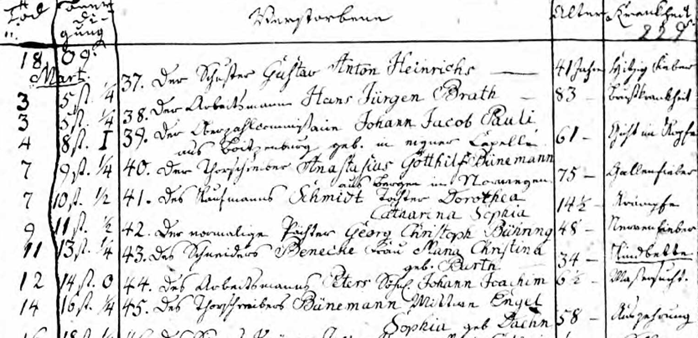 Tod Beerdigung Verstorbene Alter Krankheit
229
1809
Mart.
37. Der Schuster Gustav Anton Heinrichs — 41 Jahre hitzig Fieber
3 5 st. 1/4 38. Der Arbeitsmann Hans Jürgen Brath — 83 — Brustkrankheit
3 5 st. 1/4 39. Der Johann Jacob Pauli
4 8 st. I aus Boitzenburg geb. in Capelle 61 — Gicht im Kopfe
7 9 st. 1/4 40. Der Thorschreiber Anastasius Gotthilf Bünemann
aus Bergen in Norwegen 75 — Gallenfieber
7 10 st. 1/2 41. Des Kaufmanns Schmidt Tochter Dorothea
Catharina Sophia 14 1/2 — Krämpfe
9 11 st. 1/2 42. Der vormalige Pächter Georg Christoph Bühring 48 — Nervenfieber
11 13 st. 1/4 43. Des Schneiders Benecke Frau Maria Christina
geb. 34 — Kindbette
12 14 st. 0 44. Des Arbeitsmanns Peters Sohn Johann Joachim 6 1/2 — Wassersucht.
14 16 st. 1/4 45. Des Thorschreibers Bünemann Wittwe Engel
Sophia geb Dachn 58 — Auszehrung